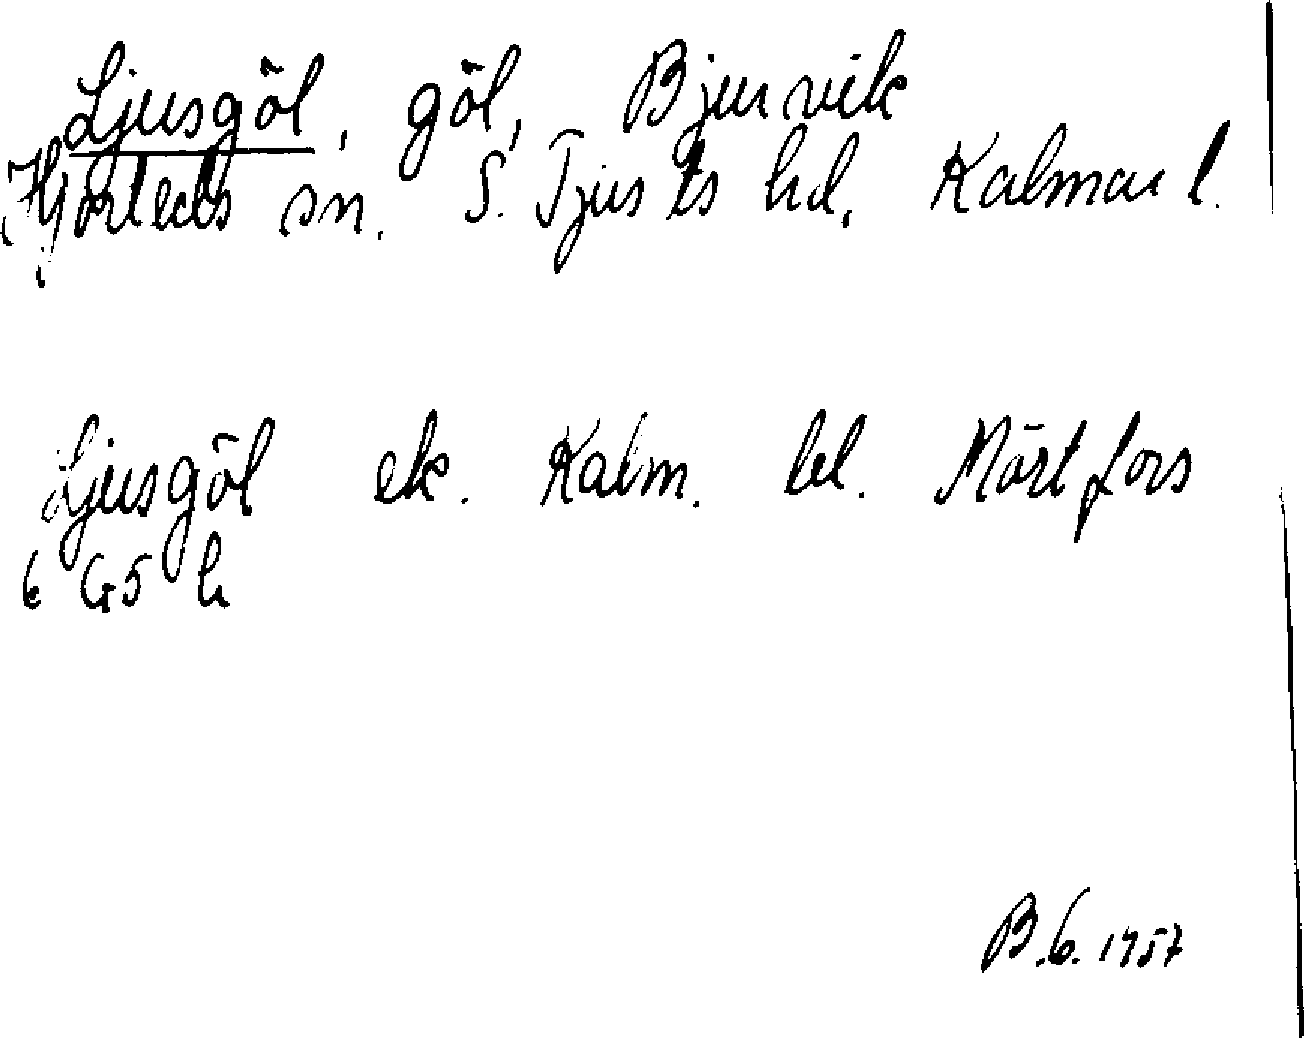 Ljusgöl, göl, Bjurvik
Hjorteds sn. S. Tjusts hd. Kalmar l.
Ljusgöl ek. Kalm. bl. Mörtfors
6 G5 h
B.G. 1957